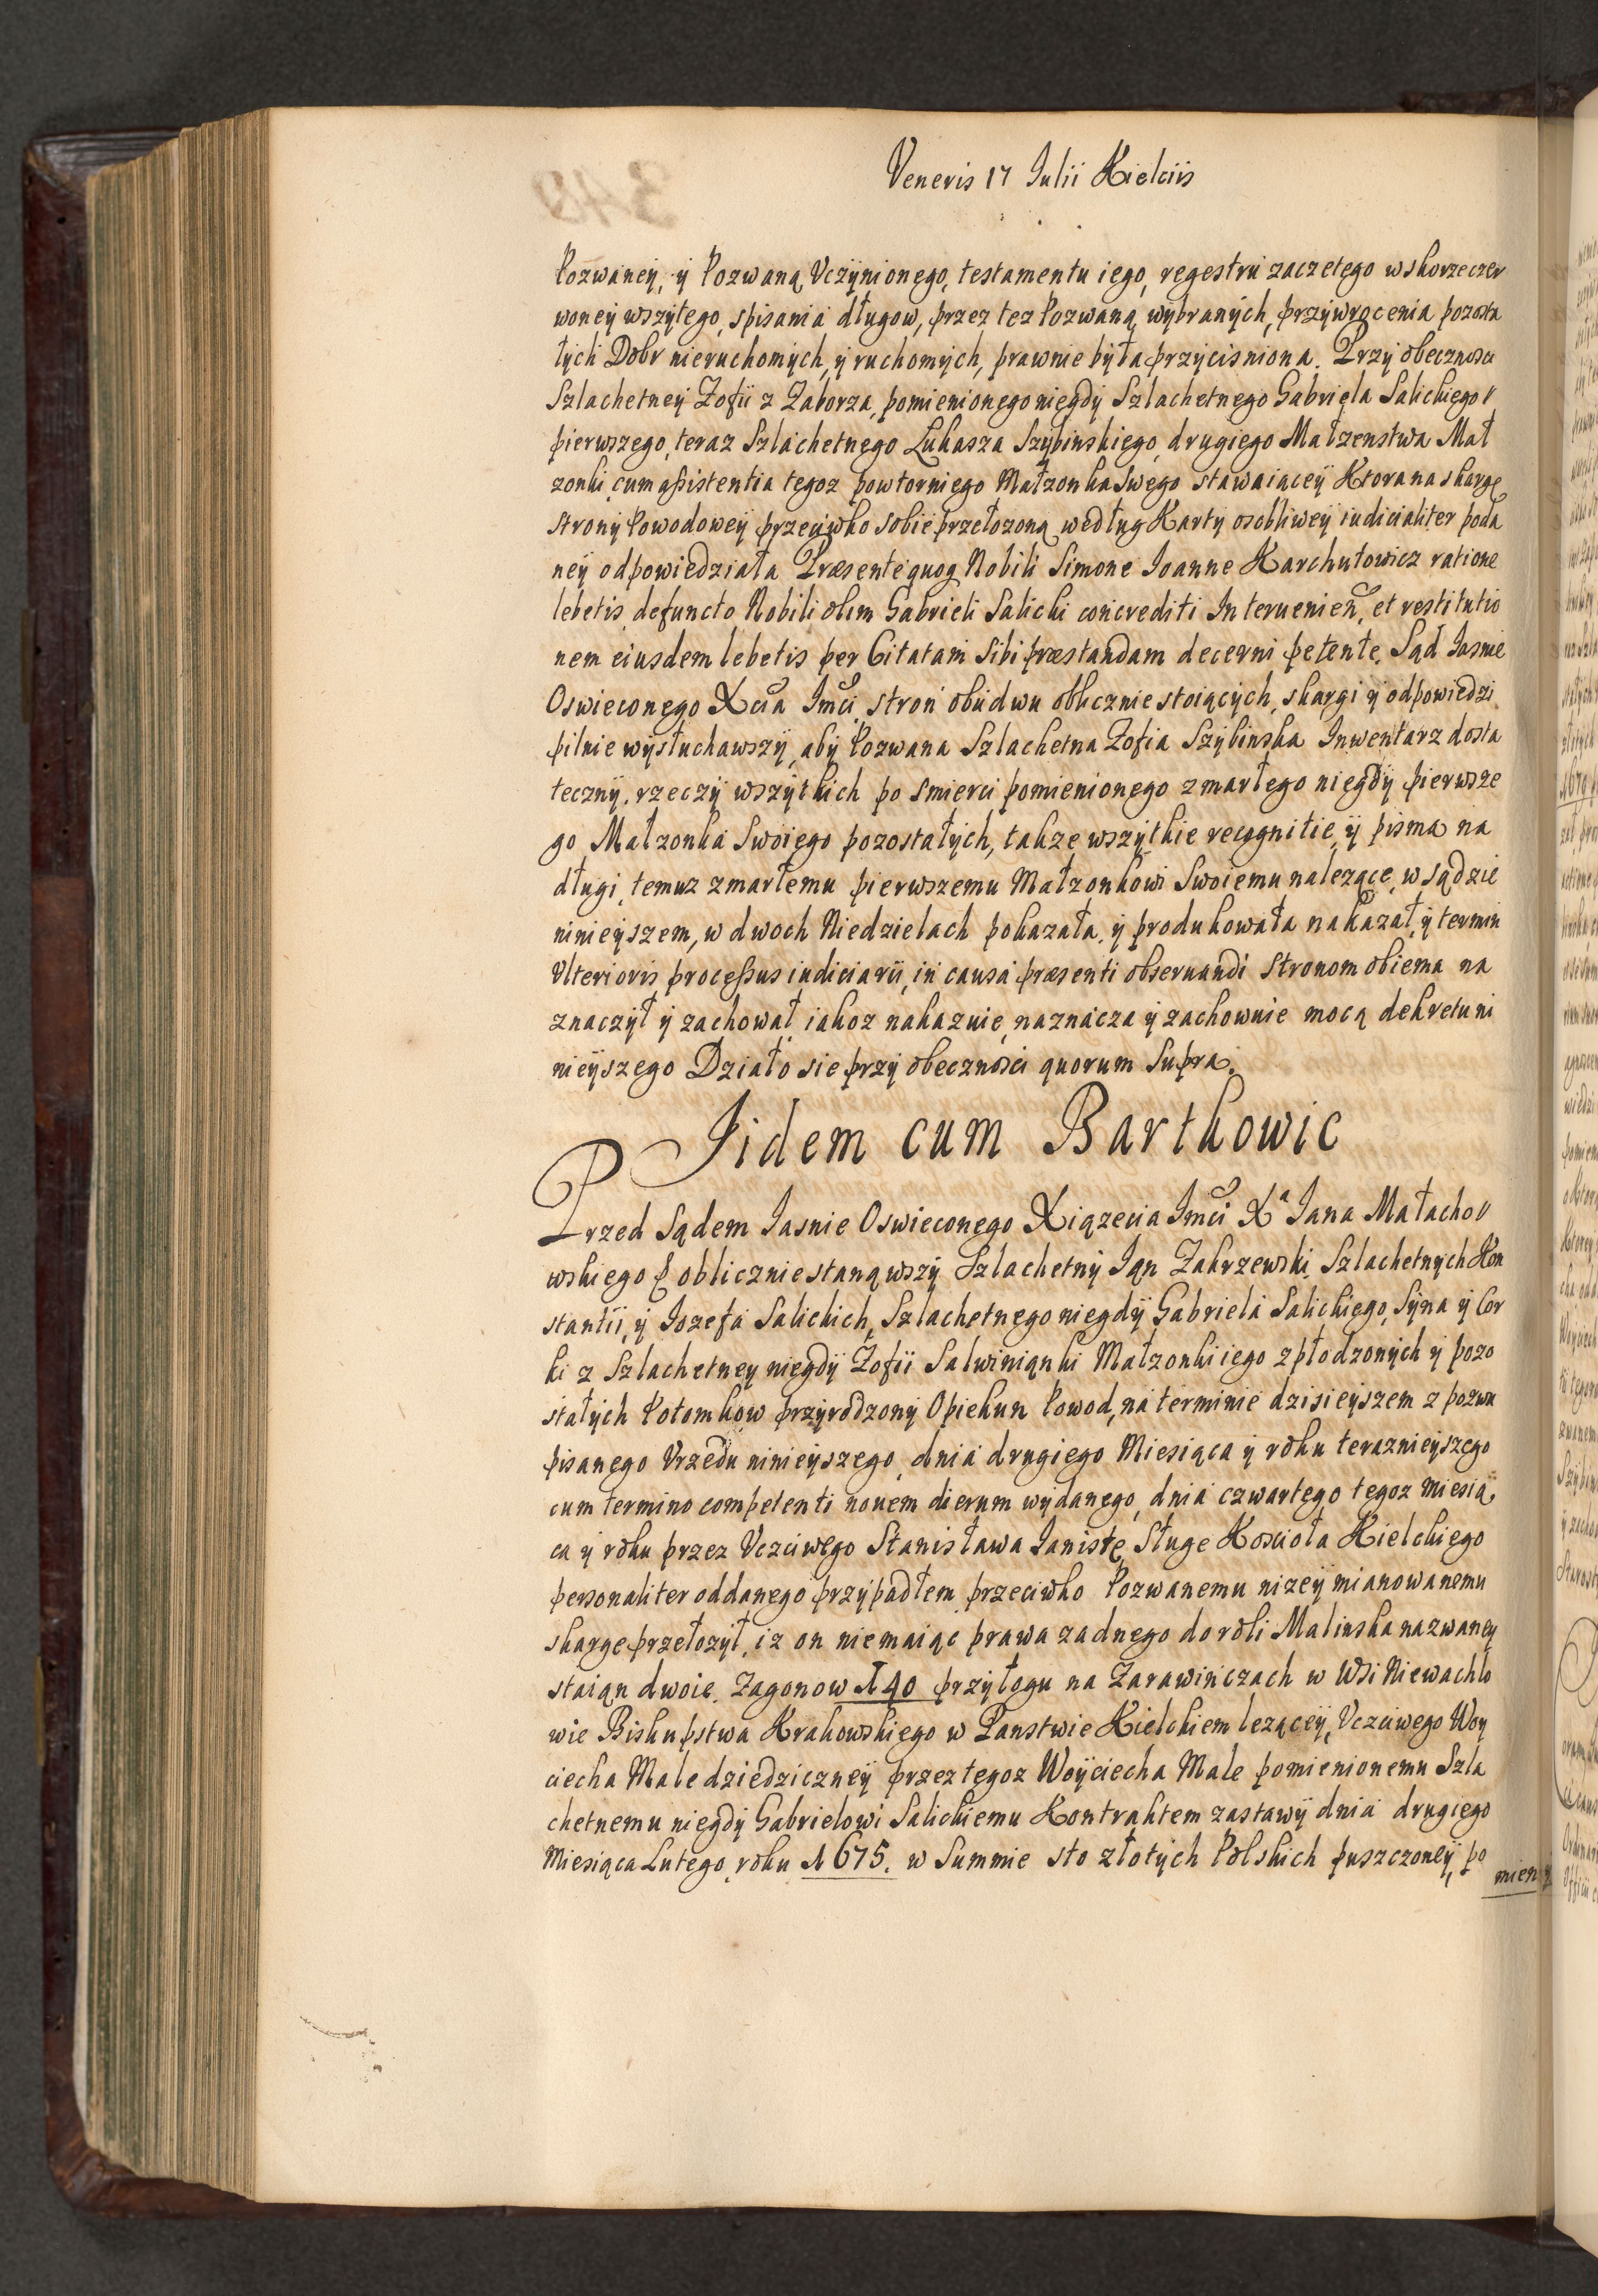 Veneris 17 Iulii Kielciis
Pozwaney, y Pozwaną Vczynionego, testamentu iego, regestru zaczetego w skorze czer
woney wszytego, spisania długow, przez tez Pozwaną wybranych, przywrocenia pozosta
łych Dobr nieruchomych, y ruchomych, prawnie była przycisniona. Przy obecznosci
Szlachetney Zofii z Zaborza, pomienionego niegdy Szlachetnego Gabriela Salickiego
pierwszego, teraz Szlachetnego Lukasza Szybinskiego, drugiego Małzenstwa Mał
zonki, cum assistentia tegoz powtorniego Małzonka Swego stawaiącey Ktora na skargę
strony Powodowey przeciwko sobie przełozoną według Karty osobliwey iudicialiter poda
ney odpowiedziała Præsente quoq Nobili Simone Ioanne Karchutowicz ratione
lebetis, defuncto Nobili olim Gabrieli Salicki concrediti Interuenień, et restitutio
nem eiusdem lebetis per Citatam Sibi præstandam decerni petente. Sąd Iasnie
Oswieconego Xcia Imci, stron obudwu oblicznie stoiących, skargi y odpowiedzi
pilnie wysłuchawszy, aby Pozwana Szlachetna Zofia Szybinska Inwentarz dosta
teczny, rzeczy wszytkich po smierci pomienionego zmarłego niegdy pierwsze
go Małzonka Swoiego pozostałych, takze wszytkie recognitie, y pisma na
długi, temuz zmarłemu pierwszemu Małzonkowi Swoiemu nalezące, w sądzie
ninieyszem, w dwoch Niedzielach pokazała, y produkowała nakazał, y termin
Vlterioris processus iudiciarii, in causa præsenti obseruandi Stronom obiema na
znaczył y zachował, iakoz nakazuie, naznacza y zachowuie mocą dekretu ni
nieyszego Działo sie przy obecznosci quorum Supra.
Iidem cum Bartkowic
Przed Sądem Iasnie Oswieconego Xiązecia Imci Xa Iana Małacho
wskiego & oblicznie stanąwszy Szlachetny Ian Zakrzewski, Szlachetnych Kon
stantii, y Iozefa Salickich, Szlachetnego niegdy Gabriela Salickiego, Syna y Cor
ki z Szlachetney niegdy Zofii Salwinianki Małzonki iego zpłodzonych y pozo
stałych Potomkow przyrodzony Opiekun Powod, na terminie dzisieyszem z pozwu
pisanego Vrzedu ninieyszego, dnia drugiego Miesiąca y roku terazniejszego
cum termino competenti nouem dierum wydanego, dnia czwartego tegoz miesią
ca y roku przez Vczciwego Stanisława Ianistę Sługe Koscioła Kielckiego
personaliter oddanego przypadłem, przeciwko Pozwanemu nizey mianowanemu
skarge przełozył, iz on niemaiąc prawa zadnego do roli Malinska nazwaney
staian dwoie, Zagonow N 40 przyłogu na Zarawinczach w Wsi Niewachlo
wie Biskupstwa Krakowskiego w Panstwie Kielckiem lezącey, Vczciwego Woy
ciecha Male dziedziczney przez tegoz Woyciecha Male pomienionemu Szla
chetnemu niegdy Gabrielowi Salickiemu Kontraktem zastawy dnia drugiego
Miesiąca Lutego, roku 1675. w Summie sto złotych Polskich puszczoney, po
mien